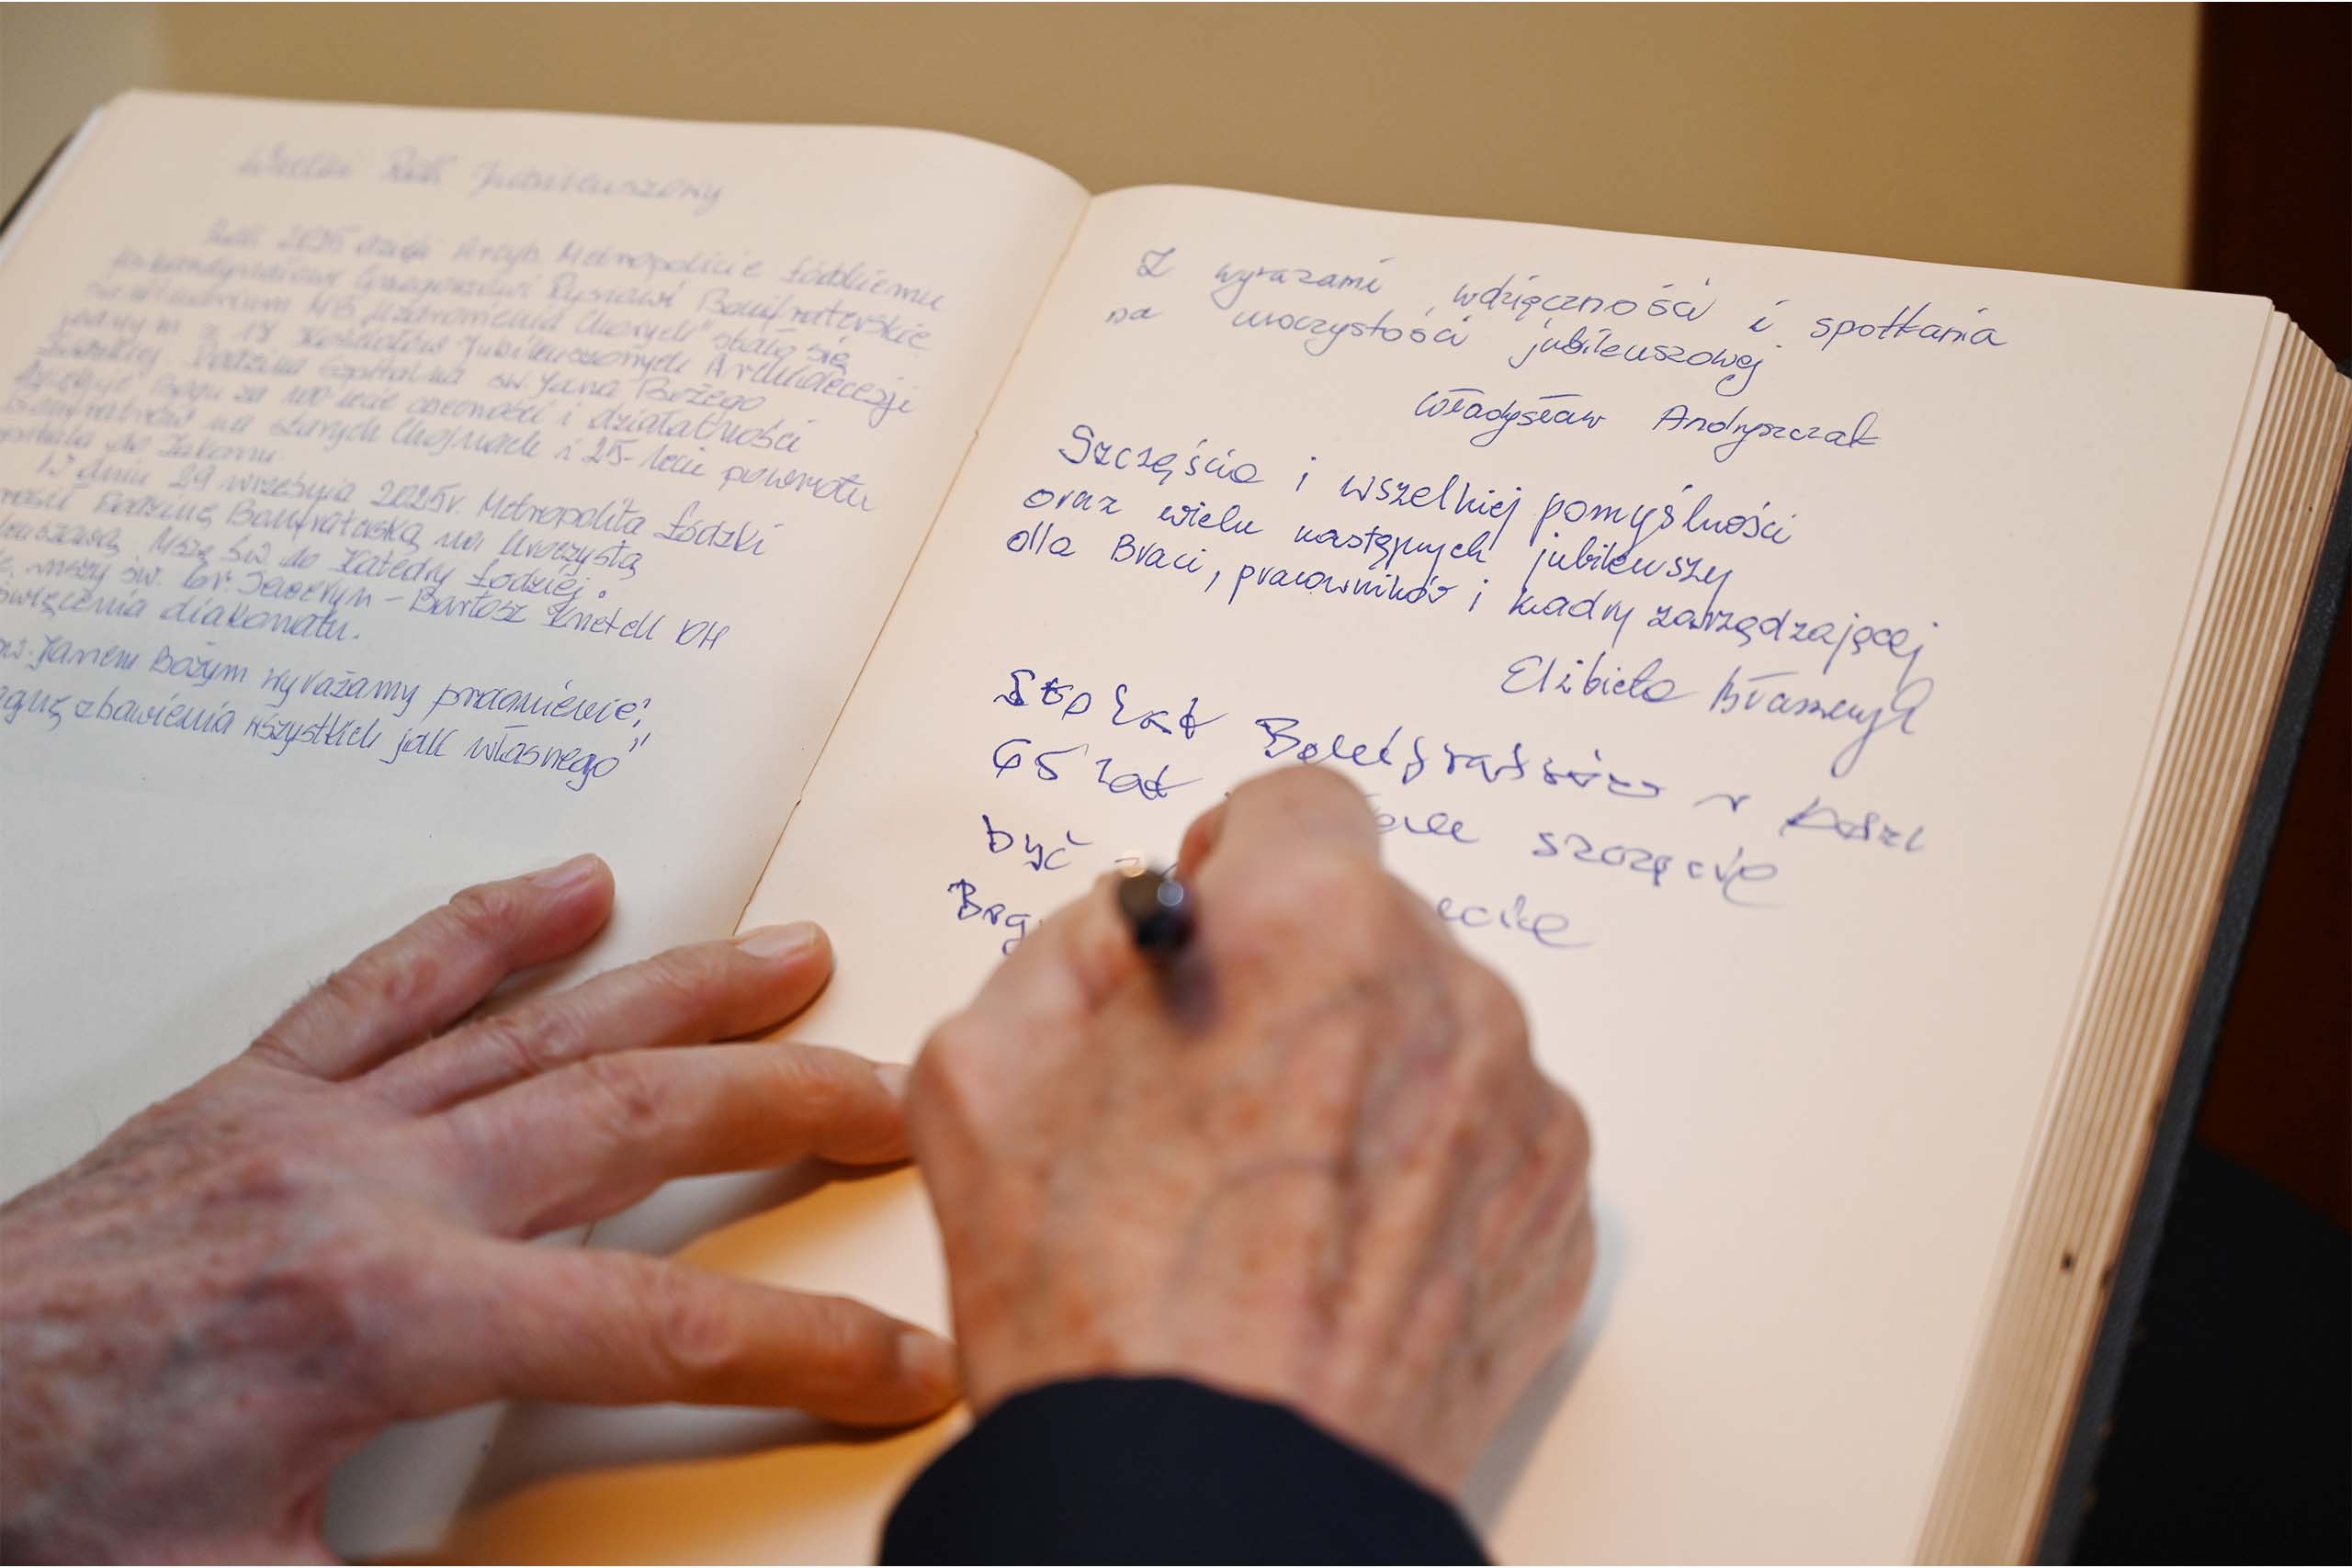 Wielki Rok Jubileuszowy
Rok 2025 dzięki Arcyb. Metropolicie Łódzkiemu
Grzegorzowi Rysiowi Bonifraterskie
MB „Uzdrowienia Chorych" stało się
jednym z Kościołów Jubileuszowych Archidiecezji
Łódzkiej. Rodzina szpitalna św. Jana Bożego
Bogu za 100 lecie obecności i działalności
Bonifratrów na starych Chojnach i 25-lecie powrotu
szpitala do Zakonu.
W dniu 29 września 2025r. Metropolita Łódzki
Rodzinę Bonifraterską na Uroczystą
Mszę Św do Katedry Łódzkiej.
mszy św. br. Seweryn - Bartosz OH
święcenia diakonatu.
Janem Bożym wyrażamy pragnienie:
zbawienia wszystkich jak własnego"
Z wyrazami wdzięczności i spotkania
na uroczystości jubileuszowej
Władysław Andryszczak
Szczęścia i wszelkiej pomyślności
oraz wielu następnych jubileuszy
dla Braci, pracowników i kadry zarządzającej
Elżbieta
Sto lat Bonifratrów w Łodzi
65 lat szczęście
być